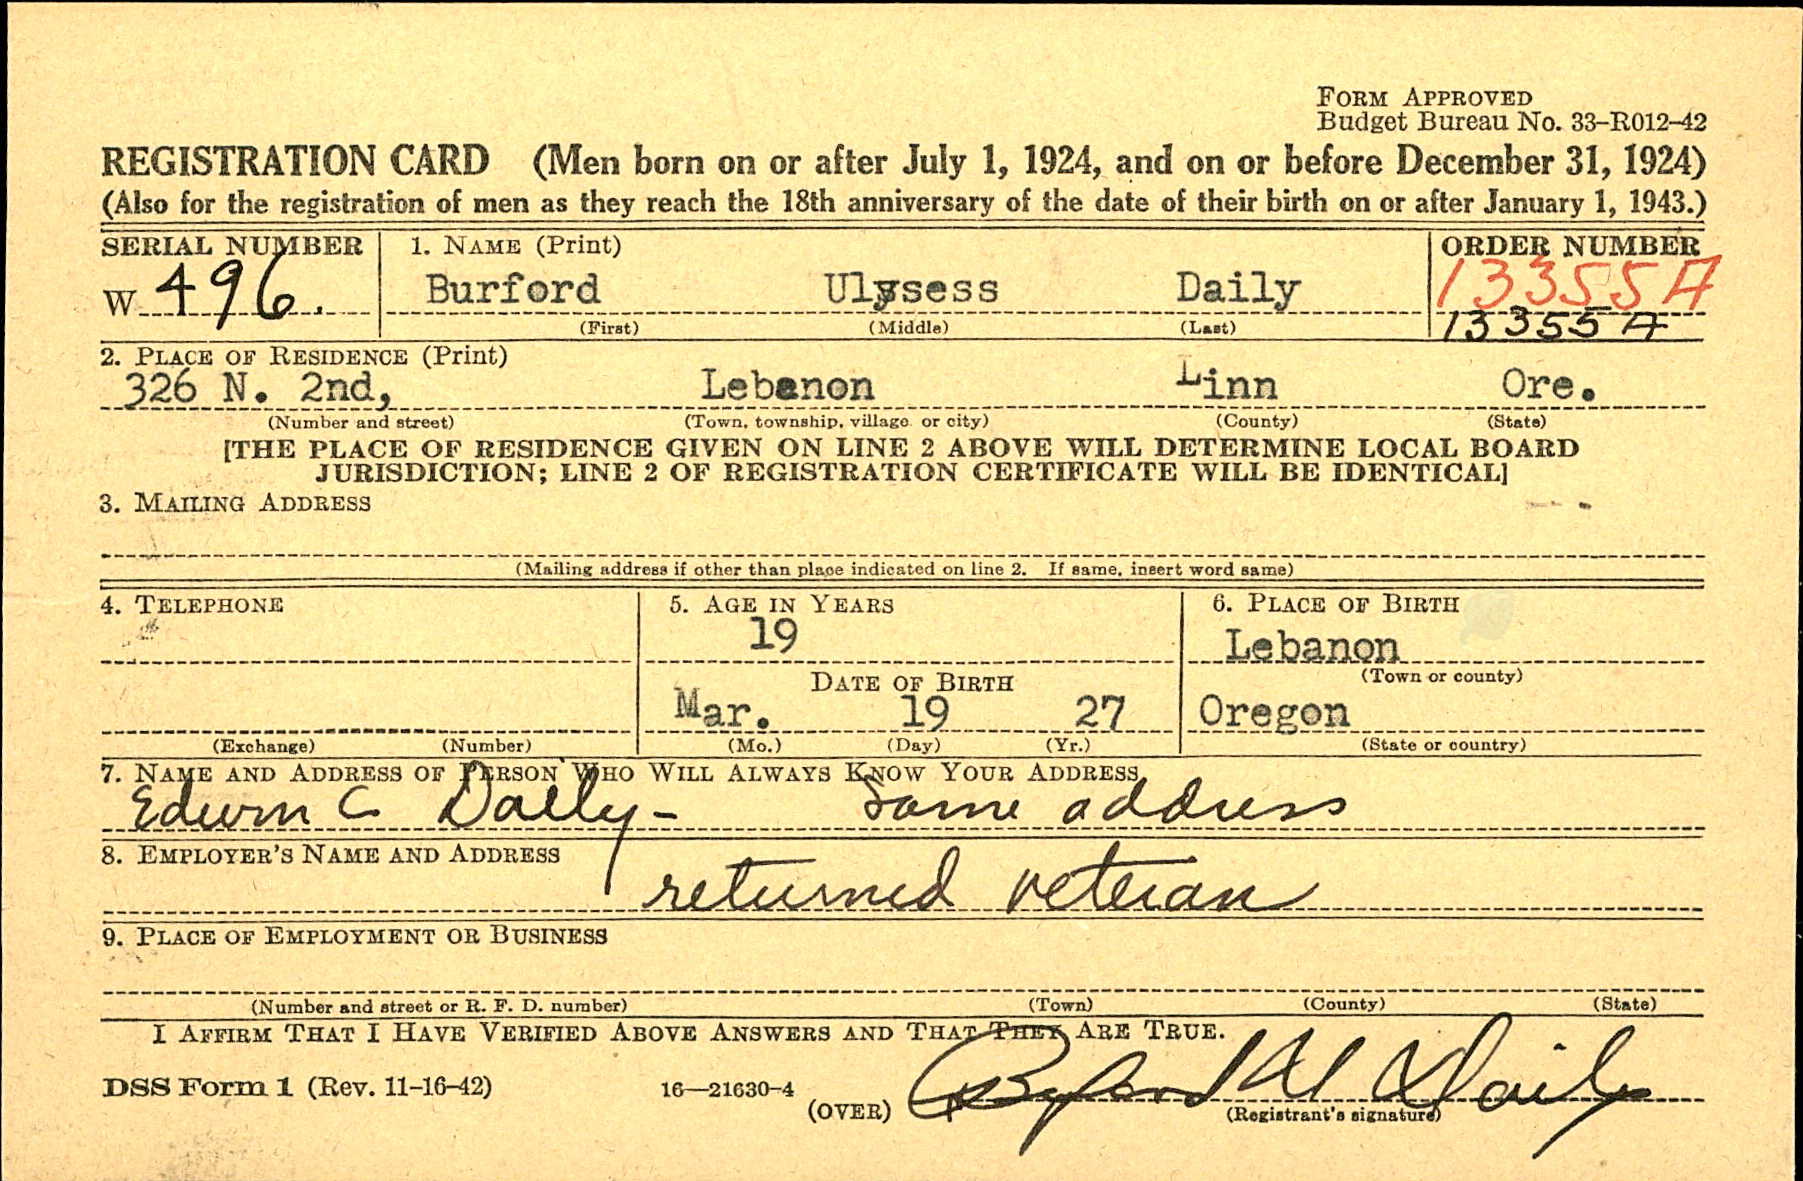 FORM APPROVED
Budget Bureau No. 33-R012-42
REGISTRATION CARD (Men born on or after July 1, 1924, and on or before December 31, 1924)
(Also for the registration of men as they reach the 18th anniversary of the date of their birth on or after January 1, 1943.)
SERIAL NUMBER 1. NAME (Print) ORDER NUMBER
W 496. Burford Ulysess Daily 13355A
(First) (Middle) (Last) 13355A
2. PLACE OF RESIDENCE (Print)
326 N. 2nd, Lebanon Linn Ore.
(Number and street) (Town, township, village or city) (County) (State)
[THE PLACE OF RESIDENCE GIVEN ON LINE 2 ABOVE WILL DETERMINE LOCAL BOARD
JURISDICTION; LINE 2 OF REGISTRATION CERTIFICATE WILL BE IDENTICAL]
3. MAILING ADDRESS
(Mailing address if other than place indicated on line 2. If same, insert word same)
4. TELEPHONE 5. AGE IN YEARS 6. PLACE OF BIRTH
19 Lebanon
DATE OF BIRTH (Town or county)
Mar. 19 27 Oregon
(Exchange) (Number) (Mo.) (Day) (Yr.) (State or country)
7. NAME AND ADDRESS OF PERSON WHO WILL ALWAYS KNOW YOUR ADDRESS
Edwin C Daily - Same address
8. EMPLOYER'S NAME AND ADDRESS
returned veteran
9. PLACE OF EMPLOYMENT OR BUSINESS
(Number and street or R. F. D. number) (Town) (County) (State)
I AFFIRM THAT I HAVE VERIFIED ABOVE ANSWERS AND THAT THEY ARE TRUE.
DSS Form 1 (Rev. 11-16-42) 16—21630-4 (OVER) Burford U Daily
(Registrant's signature)